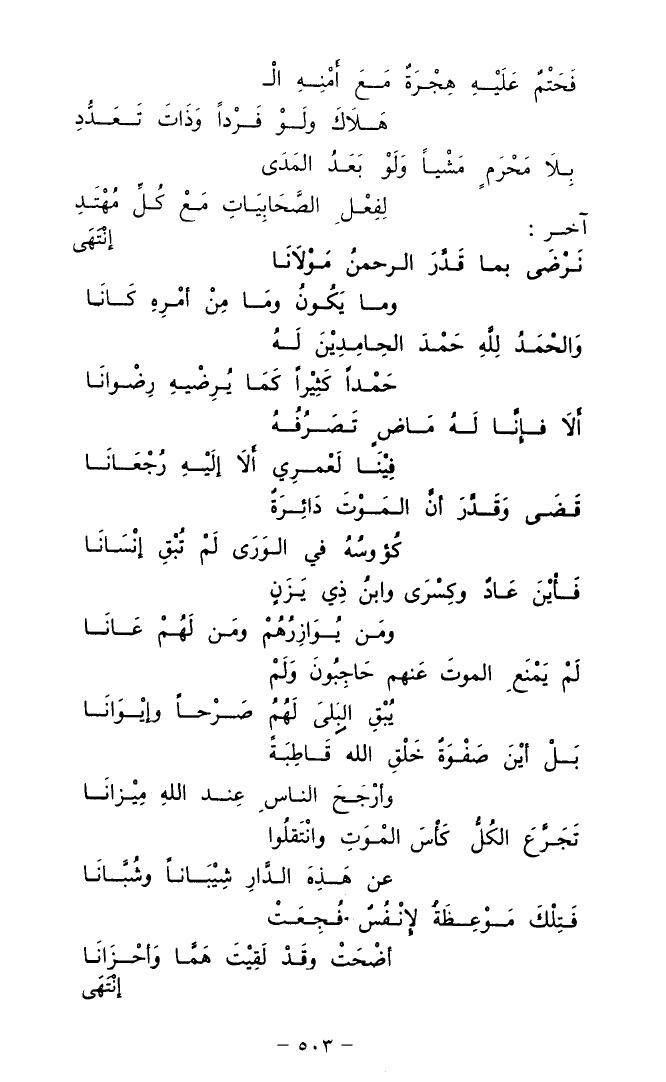 فَحَتْمٌ عَلَيْهِ هِجْرَةٌ مَعَ أَمْنِهِ الْـ
هَلَاكَ وَلَوْ فَرْداً وَذَاتَ تَعَدُّدِ
بِلَا مَحْرَمٍ مَشْياً وَلَوْ بَعُدَ المَدَى
لِفِعْلِ الصَّحَابِيَاتِ مَعْ كُلِّ مُهْتَدِ
آخر :
إنْتَهَى
نَرْضَى بما قَدَّرَ الرحمنُ مَوْلَانَا
وما يَكُونُ ومَا مِنْ أمْرِهِ كَانَا
وَالحْمَدُ لِلَّهِ حَمْدَ الحامِدِيْنَ لَهُ
حَمْداً كَثِيْراً كَمَا يُرضيهِ رِضْوانَا
أَلَا فإنَّا لَهُ مَاضٍ تَصَرُّفُهُ
فِيْنَا لَعْمرِي أَلَا إلَيْهِ رُجْعَانَا
قَضَى وَقَدَّرَ أنَّ المَوْتَ دَائِرَةٌ
كُؤوسُهُ في الوَرَى لَمْ تُبْقِ إنْسَانَا
فَأيْنَ عَادٌ وكِسْرَى وابنُ ذِي يَزَنٍ
ومَن يُوَازِرُهُمْ ومَن لَهُم عَانَا
لَمْ يَمْنَعِ الموتَ عَنهم حَاجِبُونَ وَلَمْ
يُبْقِ البِلَى لَهُمُ صَرْحاً وإيْوَانَا
بَلْ أيْنَ صَفْوَةُ خَلْقِ الله قَاطِبَةً
وأرْجَحَ الناسِ عِند اللهِ مِيْزانَا
تَجَرَّعَ الكُلُّ كَأسَ المْوَتِ وانْتَقَلُوا
عن هَذِهِ الدَّارِ شِيْبَاناً وشُبَّانَا
فَتِلْكَ مَوْعِظَةٌ لِإنْفُسٌ فُجِعَتْ
أضْحَتْ وقَدْ لَقِيَتْ هَمًّا وَأحْزانَا
إنْتَهَى
– ٥٠٣ –